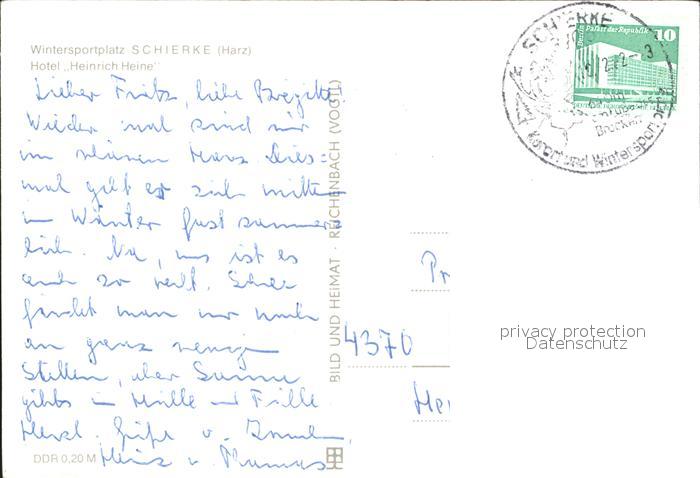 Wintersportplatz SCHIERKE (Harz)
Hotel „Heinrich Heine"
Lieber Fritz, liebe Brigitte
Wieder mal sind wir
im schönen Harz. Dies=
mal gibt es sich mitten
im Winter fast sommer=
lich. Na, uns ist es
auch so recht. Schnee
findet man nur noch
an ganz wenigen
Stellen, aber Sonne
gibts in Hülle und Fülle
Herzl. Grüße v.
Heinz u. Thomas
DDR 0,20 M
BILD UND HEIMAT · REICHENBACH (VOGTL)
Pr
4370
Hei
SCHIERKE
Brocken
Kurort und Wintersport
Berlin Palast der Republik 10
privacy protection
Datenschutz